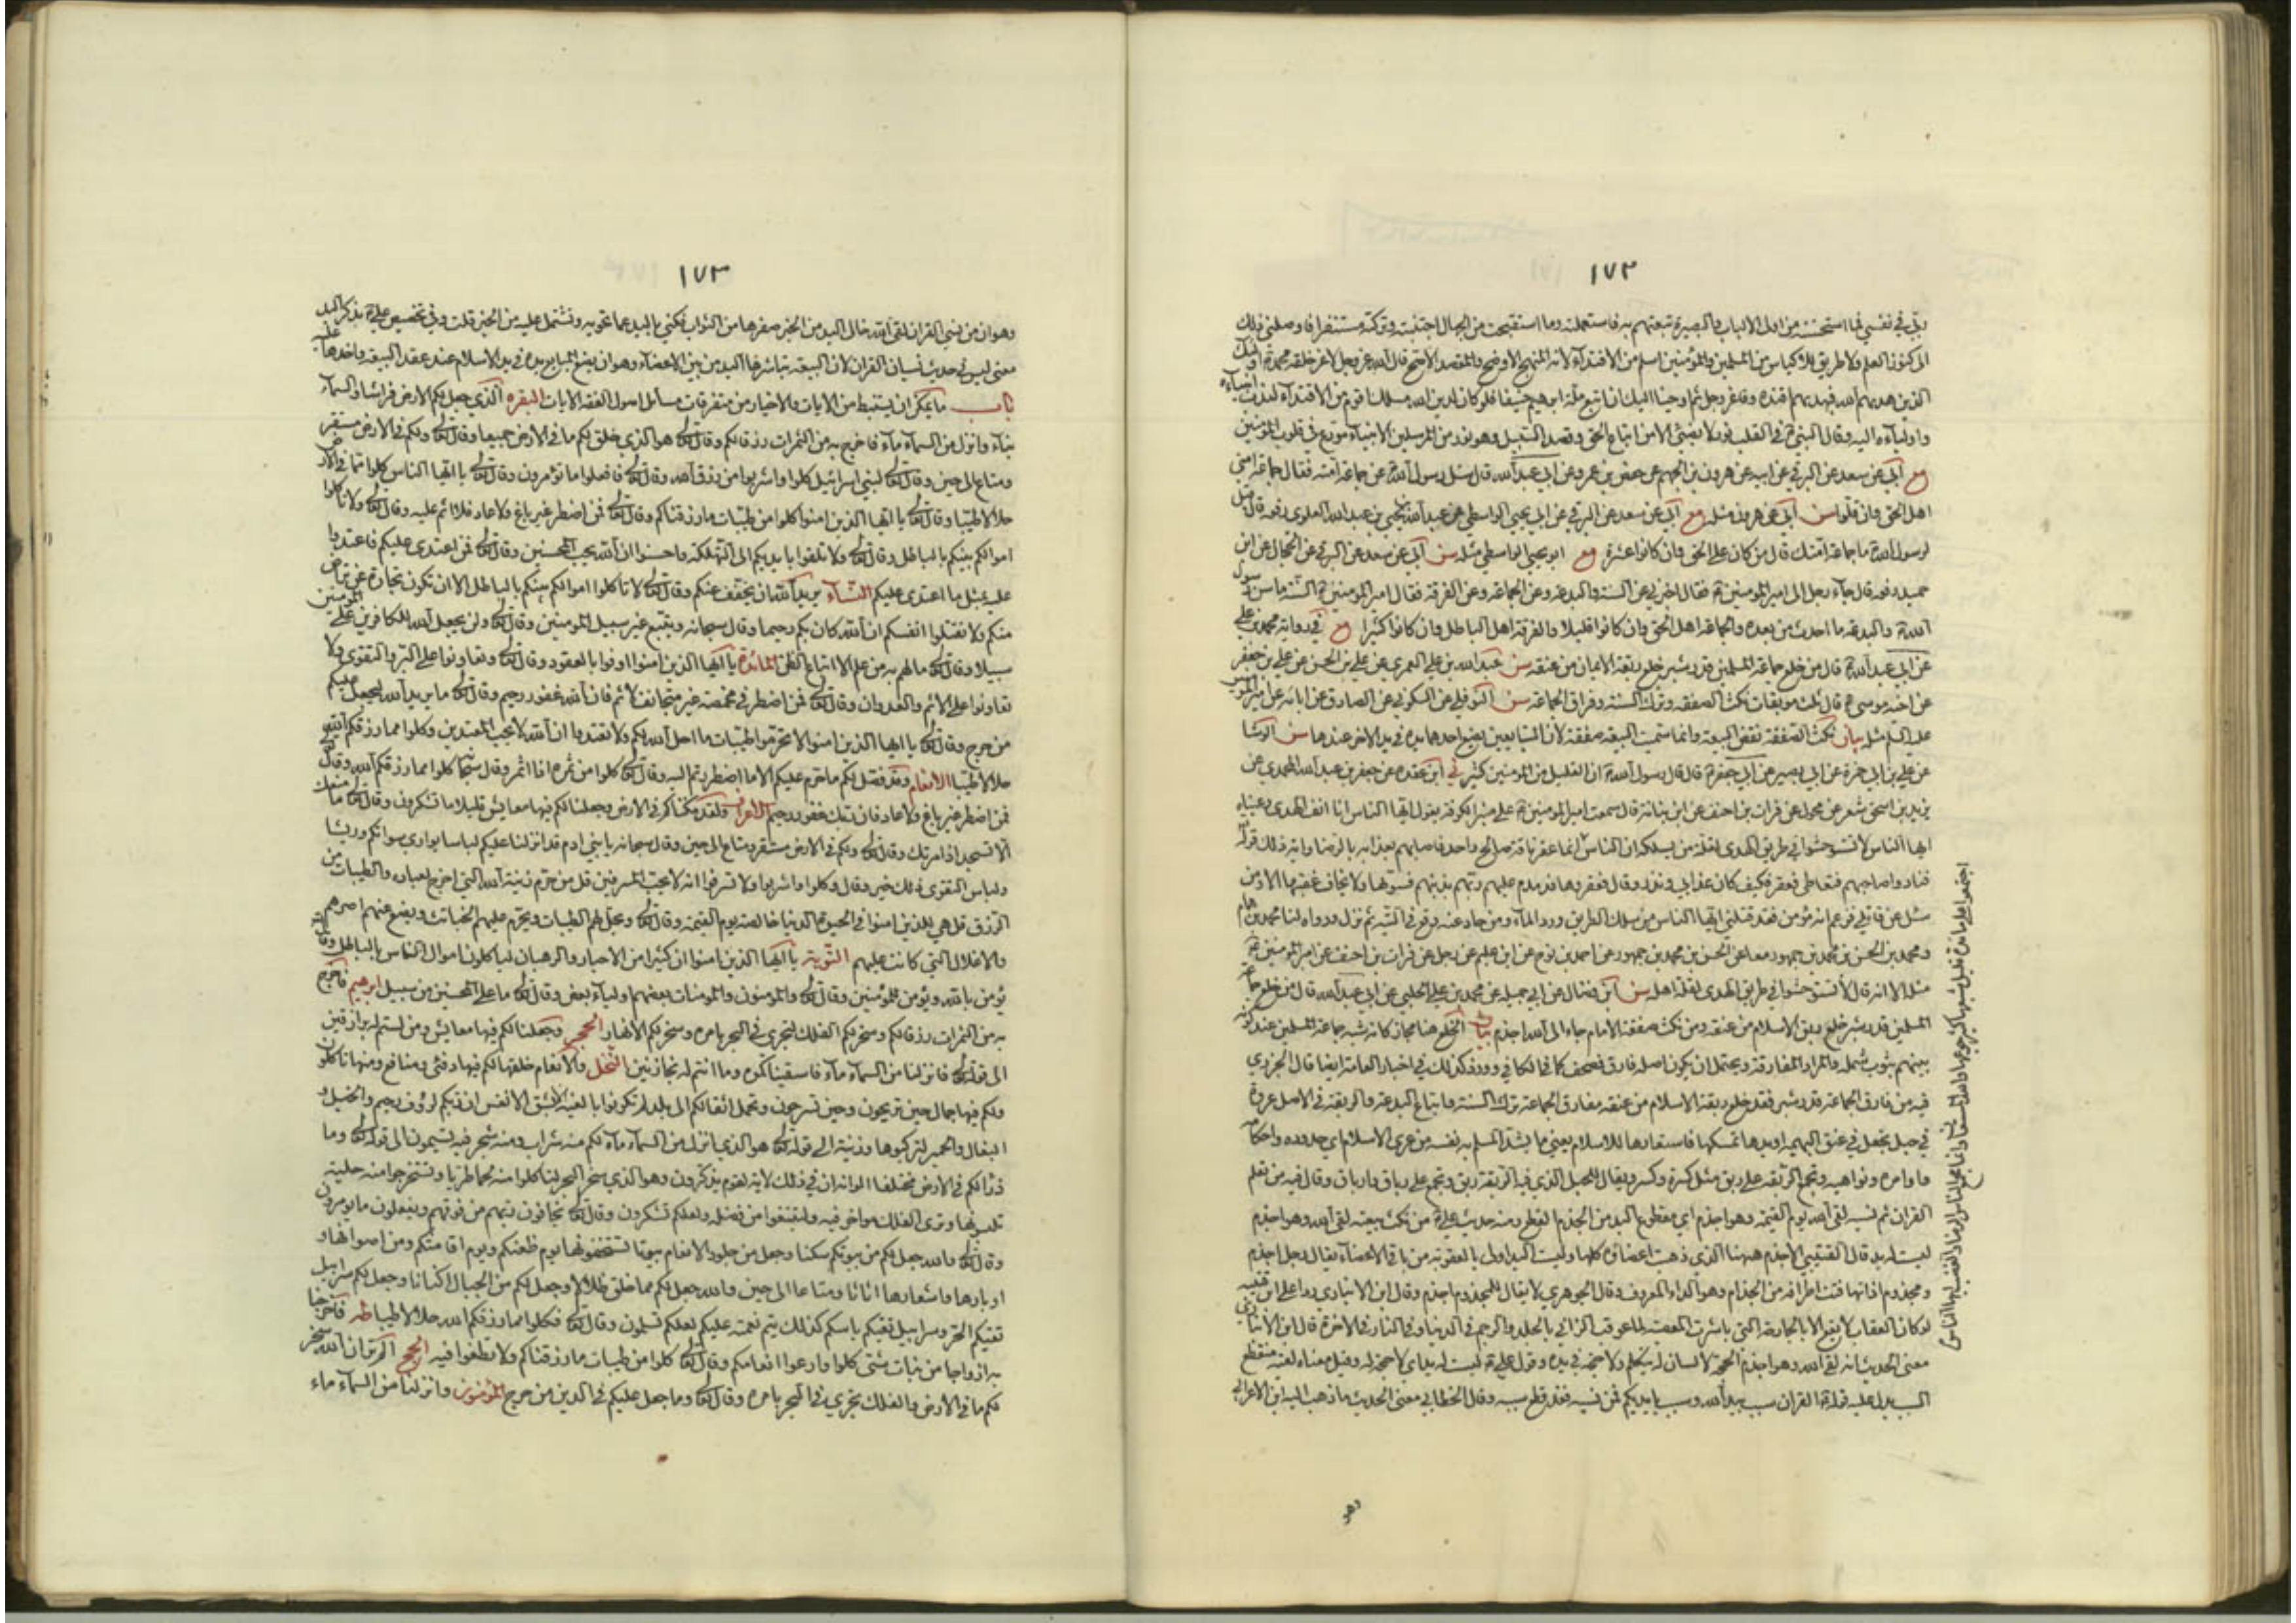 ١٧٢
بقي في نفسي فما استحسنته من اولى الالباب والبصيرة تبعتهم به فاستعملته وما استقبحت من الجهال اجتنبته وتركته مستنفرا فاوصلني ذلك
الى كنوز العلم ولا طريق للاكياس من المسلمين والمؤمنين اسلم من الاقتداء لانه المنهج الاوضح والمقصد الاصح قال الله عز وجل لاعز خلقه محمد ص اولئك
الذين هديهم الله فبهديهم اقتده وقال عز وجل ثم اوحينا اليك ان اتبع ملة ابرهيم حنيفا فلو كان لدين الله مسلك اقوم من الاقتداء لندب انبياءه
واولياءه اليه وقال النبي ص في القلب نور لا يضيئ الا من اتباع الحق وقصد السبيل وهو نور من المرسلين الانبياء مودع في قلوب المؤمنين
مع ابي عن سعد عن البرقي عن ابيه عن هرون بن الجهم عن حفص بن عمرو عن ابي عبد الله قال سئل رسول الله ص عن جماعة امته فقال جماعة امتي
اهل الحق وان قلوا سن ابي عن هرون مثله مع ابي عن سعد عن البرقي عن ابي يحيى الواسطي عن عبد الله بن يحيى بن عبد الله العلوي رفعه قال قيل
لرسول الله ص ما جماعة امتك قال من كان على الحق وان كانوا عشرة مع ابو يحيى الواسطي مثله سن ابي عن سعد عن البرقي عن الحجال عن ابن
حميد رفعه قال جاء رجل الى امير المؤمنين ع فقال اخبرني عن السنة والبدعة وعن الجماعة وعن الفرقة فقال امير المؤمنين ع السنة ما سن رسول
الله ص والبدعة ما احدث من بعده والجماعة اهل الحق وان كانوا قليلا والفرقة اهل الباطل وان كانوا كثيرا مع في رواية محمد بن علي
عن ابي عبد الله ع قال من خلع جماعة المسلمين قدر شبر خلع ربقة الايمان من عنقه سن عبد الله بن علي العمري عن علي بن الحسن عن علي بن جعفر
عن اخيه موسى ع قال ثلث موبقات نكث الصفقة وترك السنة وفراق الجماعة سن النوفلي عن السكوني عن الصادق عن ابائه عن امير المؤمنين
عليه السلم مثله بيان نكث الصفقة نقض البيعة وانما سميت البيعة صفقة لان المتبايعين يضع احدهما يده في يد الاخر عندها سن الوشا
عن علي بن ابي حمزة عن ابي بصير عن ابي جعفر ع قال قال رسول الله ص ان القليل من المؤمنين كثير ني ابن عقده عن جعفر بن عبد الله المحمدي عن
يزيد بن اسحق شعر عن مخول عن فرات بن احنف عن ابن نباتة قال سمعت امير المؤمنين ع على منبر الكوفة يقول ايها الناس انا انف الهدى وعيناه
ايها الناس لا تستوحشوا في طريق الهدى لقلة من يسلكه ان الناس انما عقر ناقة صالح واحد فاصابهم بعذابه بالرضا واية ذلك قوله
فنادوا صاحبهم فتعاطى فعقر فكيف كان عذابي ونذر وقال فعقروها فدمدم عليهم ربهم بذنبهم فسوّاها ولا يخاف عقبيها الا ومن
سئل عن قاتلي فزعم انه مؤمن فقد قتلني ايها الناس من سلك الطريق ورد الماء ومن حاد عنه وقع في التيه ثم نزل ورواه لنا محمد بن همام
ومحمد بن الحسن بن محمد بن جمهور معا عن الحسن بن محمد بن جمهور عن احمد بن نوح عن ابن عليم عن رجل عن فرات بن احنف عن امير المؤمنين ع
مثله الا انه قال لا تستوحشوا في طريق الهدى لقلة اهله سن ابن فضال عن ابي جميلة عن محمد بن علي الحلبي عن ابي عبد الله قال من خلع جماعة
المسلمين قدر شبر خلع ربق الاسلام من عنقه ومن نكث صفقة الامام جاء الى الله اجذم بيان الخلع هنا مجاز كانه شبه جماعة المسلمين عند كونه
بينهم بثوب شمله والمراد المفارقة ويحتمل ان يكون اصله فارق فصحف كما في الكافي وورد كذلك في اخبار العامة ايضا قال الجزري
فيه من فارق الجماعة قدر شبر فقد خلع ربقة الاسلام من عنقه مفارقة الجماعة ترك السنة واتباع البدعة والربقة في الاصل عروة
في حبل يجعل في عنق البهيمة او يدها تمسكها فاستعارها للاسلام يعني ما يشد المسلم به نفسه من عرى الاسلام اي حدوده واحكامه
واوامره ونواهيه وتجمع الربقة على ربق مثل كسرة وكسر ويقال للحبل الذي فيه الربقة ربق وتجمع على رباق وارباق وقال فيه من تعلم
القران ثم نسيه لقي الله يوم القيمة وهو اجذم اي مقطوع اليد من الجذم القطع ومنه حديث علي ع من نكث بيعته لقي الله وهو اجذم
ليست له يد قال القتيبي الاجذم ههنا الذي ذهبت اعضاؤه كلها وليست اليد اولى بالعقوبة من باقي الاعضاء يقال رجل اجذم
ومجذوم اذا تهافتت اطرافه من الجذام وهو الداء المعروف وقال الجوهري لا يقال للمجذوم اجذم وقال ابن الانباري ردا على ابن قتيبه
لو كان العقاب لا يقع الا بالجارحة التي باشرت المعصية لما عوقب الزاني بالجلد والرجم في الدنيا وفي النار في الاخرة قال ابن الانباري
معنى الحديث انه لقي الله وهو اجذم الحجة لا لسان له يتكلم ولا حجة في يده وقول علي ع ليست له يد اي لا حجة له وقيل معناه لقيه منقطع
السبب يدل عليه قوله القران سبب بيد الله وسبب بايديكم فمن نسيه فقد قطع سببه وقال الخطابي معنى الحديث ما ذهب اليه ابن الاعرابي
وهو
اجتمعوا على مائدة قليل شبعها كثير جوعها والله المستعان وانما يجمع الناس الرضا والغضب ايها الناس
١٧٣
وهو ان من نسي القران لقي الله خالي اليد من الخير صفرها من الثواب فكنى باليد عما تحويه وتشتمل عليه من الخير قلت وفي تخصيص علي ع بذكر اليد
معنى ليس في حديث نسيان القران لان البيعة تباشرها اليد من بين الاعضاء وهو ان يضع المبايع يده في يد الامام عند عقد البيعة واخذها عليه
باب ما يمكن ان يستنبط من الايات والاخبار من متفرقات مسائل اصول الفقه الايات البقره الذي جعل لكم الارض فراشا والسماء
بناء وانزل من السماء ماء فاخرج به من الثمرات رزقا لكم وقال تعالى هو الذي خلق لكم ما في الارض جميعا وقال تعالى ولكم في الارض مستقر
ومتاع الى حين وقال تعالى لبني اسرائيل كلوا واشربوا من رزق الله وقال تعالى فافعلوا ما تؤمرون وقال تعالى يا ايها الناس كلوا مما في الارض
حلالا طيبا وقال تعالى يا ايها الذين امنوا كلوا من طيبات ما رزقناكم وقال تعالى فمن اضطر غير باغ ولا عاد فلا اثم عليه وقال تعالى ولا تاكلوا
اموالكم بينكم بالباطل وقال تعالى ولا تلقوا بايديكم الى التهلكة واحسنوا ان الله يحب المحسنين وقال تعالى فمن اعتدى عليكم فاعتدوا
عليه بمثل ما اعتدى عليكم النساء يريد الله ان يخفف عنكم وقال تعالى لا تاكلوا اموالكم بينكم بالباطل الا ان تكون تجارة عن تراض
منكم ولا تقتلوا انفسكم ان الله كان بكم رحيما وقال سبحانه ويتبع غير سبيل المؤمنين وقال تعالى ولن يجعل الله للكافرين على المؤمنين
سبيلا وقال تعالى ما لهم به من علم الا اتباع الظن المائدة يا ايها الذين امنوا اوفوا بالعقود وقال تعالى وتعاونوا على البر والتقوى ولا
تعاونوا على الاثم والعدوان وقال تعالى فمن اضطر في مخمصة غير متجانف لاثم فان الله غفور رحيم وقال تعالى ما يريد الله ليجعل عليكم
من حرج وقال تعالى يا ايها الذين امنوا لا تحرموا طيبات ما احل الله لكم ولا تعتدوا ان الله لا يحب المعتدين وكلوا مما رزقكم الله
حلالا طيبا الانعام وقد فصل لكم ما حرم عليكم الا ما اضطررتم اليه وقال تعالى كلوا من ثمره اذا اثمر وقال كلوا مما رزقكم الله وقال
فمن اضطر غير باغ ولا عاد فان ربك غفور رحيم الاعراف ولقد مكناكم في الارض وجعلنا لكم فيها معايش قليلا ما تشكرون وقال تعالى ما منعك
الا تسجد اذ امرتك وقال تعالى ولكم في الارض مستقر ومتاع الى حين وقال سبحانه يا بني ادم قد انزلنا عليكم لباسا يواري سواتكم وريشا
ولباس التقوى ذلك خير وقال وكلوا واشربوا ولا تسرفوا انه لا يحب المسرفين قل من حرم زينة الله التي اخرج لعباده والطيبات من
الرزق قل هي للذين امنوا في الحيوة الدنيا خالصة يوم القيمة وقال تعالى ويحل لهم الطيبات ويحرم عليهم الخبائث ويضع عنهم اصرهم
والاغلال التي كانت عليهم التوبة يا ايها الذين امنوا ان كثيرا من الاحبار والرهبان لياكلون اموال الناس بالباطل وقال تعالى
يؤمن بالله ويؤمن للمؤمنين وقال تعالى والمؤمنون والمؤمنات بعضهم اولياء بعض وقال تعالى ما على المحسنين من سبيل ابرهيم فاخرج
به من الثمرات رزقا لكم وسخر لكم الفلك لتجري في البحر بامره وسخر لكم الانهار الحجر وجعلنا لكم فيها معايش ومن لستم له برازقين
الى قوله تعالى فانزلنا من السماء ماء فاسقيناكموه وما انتم له بخازنين النحل والانعام خلقها لكم فيها دفئ ومنافع ومنها تاكلون
ولكم فيها جمال حين تريحون وحين تسرحون وتحمل اثقالكم الى بلد لم تكونوا بالغيه الا بشق الانفس ان ربكم لرؤف رحيم والخيل و
البغال والحمير لتركبوها وزينة الى قوله تعالى هو الذي انزل من السماء ماء لكم منه شراب ومنه شجر فيه تسيمون الى قوله تعالى وما
ذرا لكم في الارض مختلفا الوانه ان في ذلك لاية لقوم يذكرون وهو الذي سخر البحر لتاكلوا منه لحما طريا وتستخرجوا منه حلية
تلبسونها وترى الفلك مواخر فيه ولتبتغوا من فضله ولعلكم تشكرون وقال تعالى يخافون ربهم من فوقهم ويفعلون ما يؤمرون
وقال تعالى والله جعل لكم من بيوتكم سكنا وجعل من جلود الانعام بيوتا تستخفونها يوم ظعنكم ويوم اقامتكم ومن اصوافها و
اوبارها واشعارها اثاثا ومتاعا الى حين والله جعل لكم مما خلق ظلالا وجعل لكم من الجبال اكنانا وجعل لكم سرابيل
تقيكم الحر وسرابيل تقيكم باسكم كذلك يتم نعمته عليكم لعلكم تسلمون وقال تعالى فكلوا مما رزقكم الله حلالا طيبا طه فاخرجنا
به ازواجا من نبات شتى كلوا وارعوا انعامكم وقال تعالى كلوا من طيبات ما رزقناكم ولا تطغوا فيه الحج الم تر ان الله سخر
لكم ما في الارض والفلك تجري في البحر بامره وقال تعالى وما جعل عليكم في الدين من حرج المؤمنون وانزلنا من السماء ماء